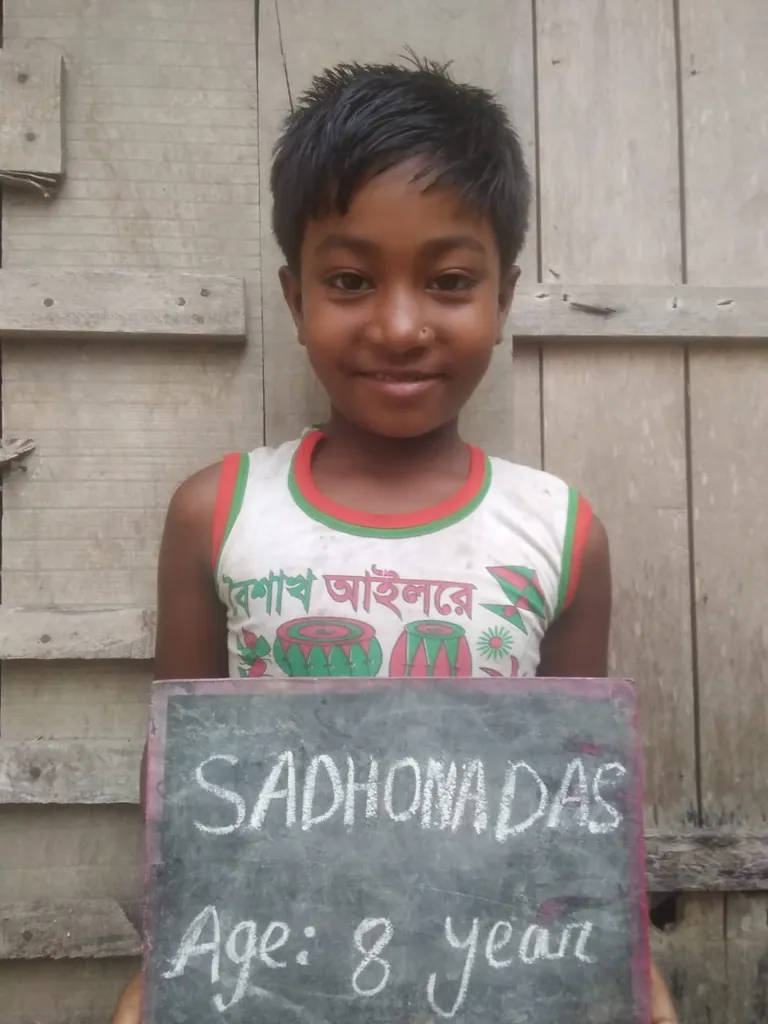 বৈশাখ আইলরে
SADHONA DAS
Age: 8 year